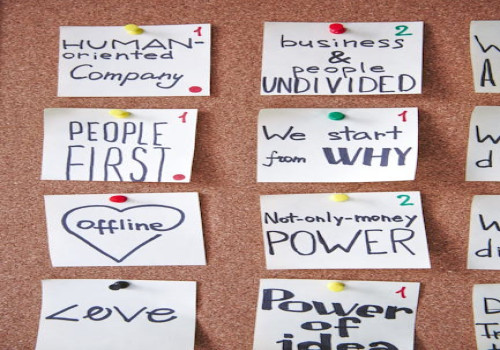 HUMAN- 1
oriented
Company
business 2
&
people
UNDIVIDED
PEOPLE 1
FIRST
We start 1
from WHY
offline
Not-only-money 2
POWER
Love
Power 1
of
idea
W
A
W
d
W
di
D